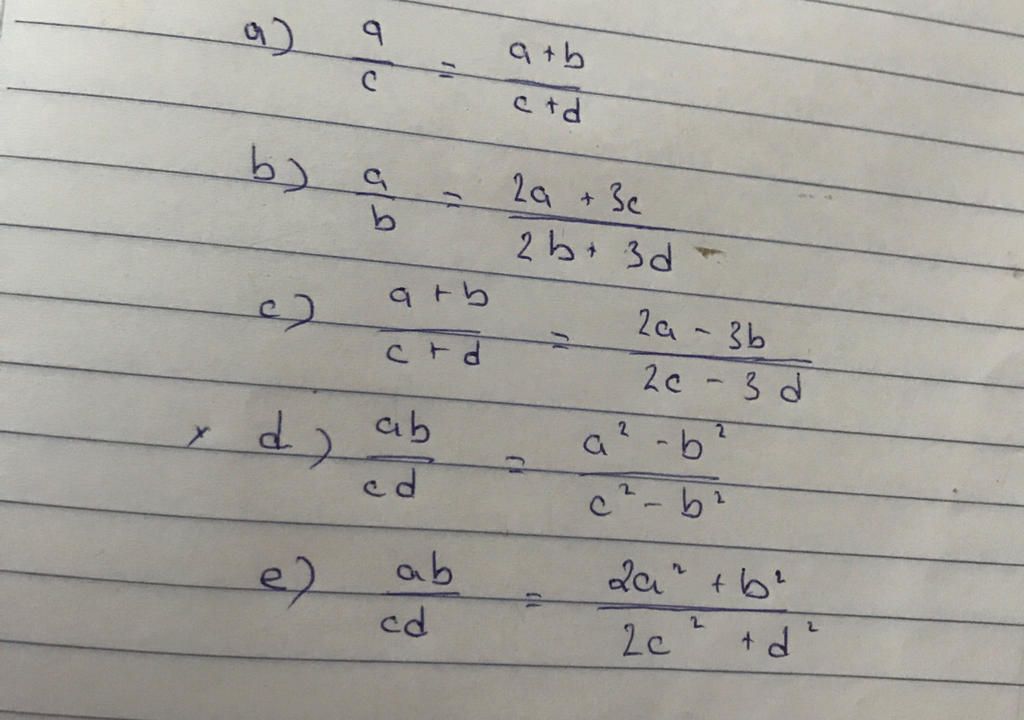 a) a/c = (a+b)/(c+d)
b) a/b = (2a+3c)/(2b+3d)
c) (a+b)/(c+d) = (2a-3b)/(2c-3d)
x d) ab/cd = (a²-b²)/(c²-b²)
e) ab/cd = (2a²+b²)/(2c²+d²)